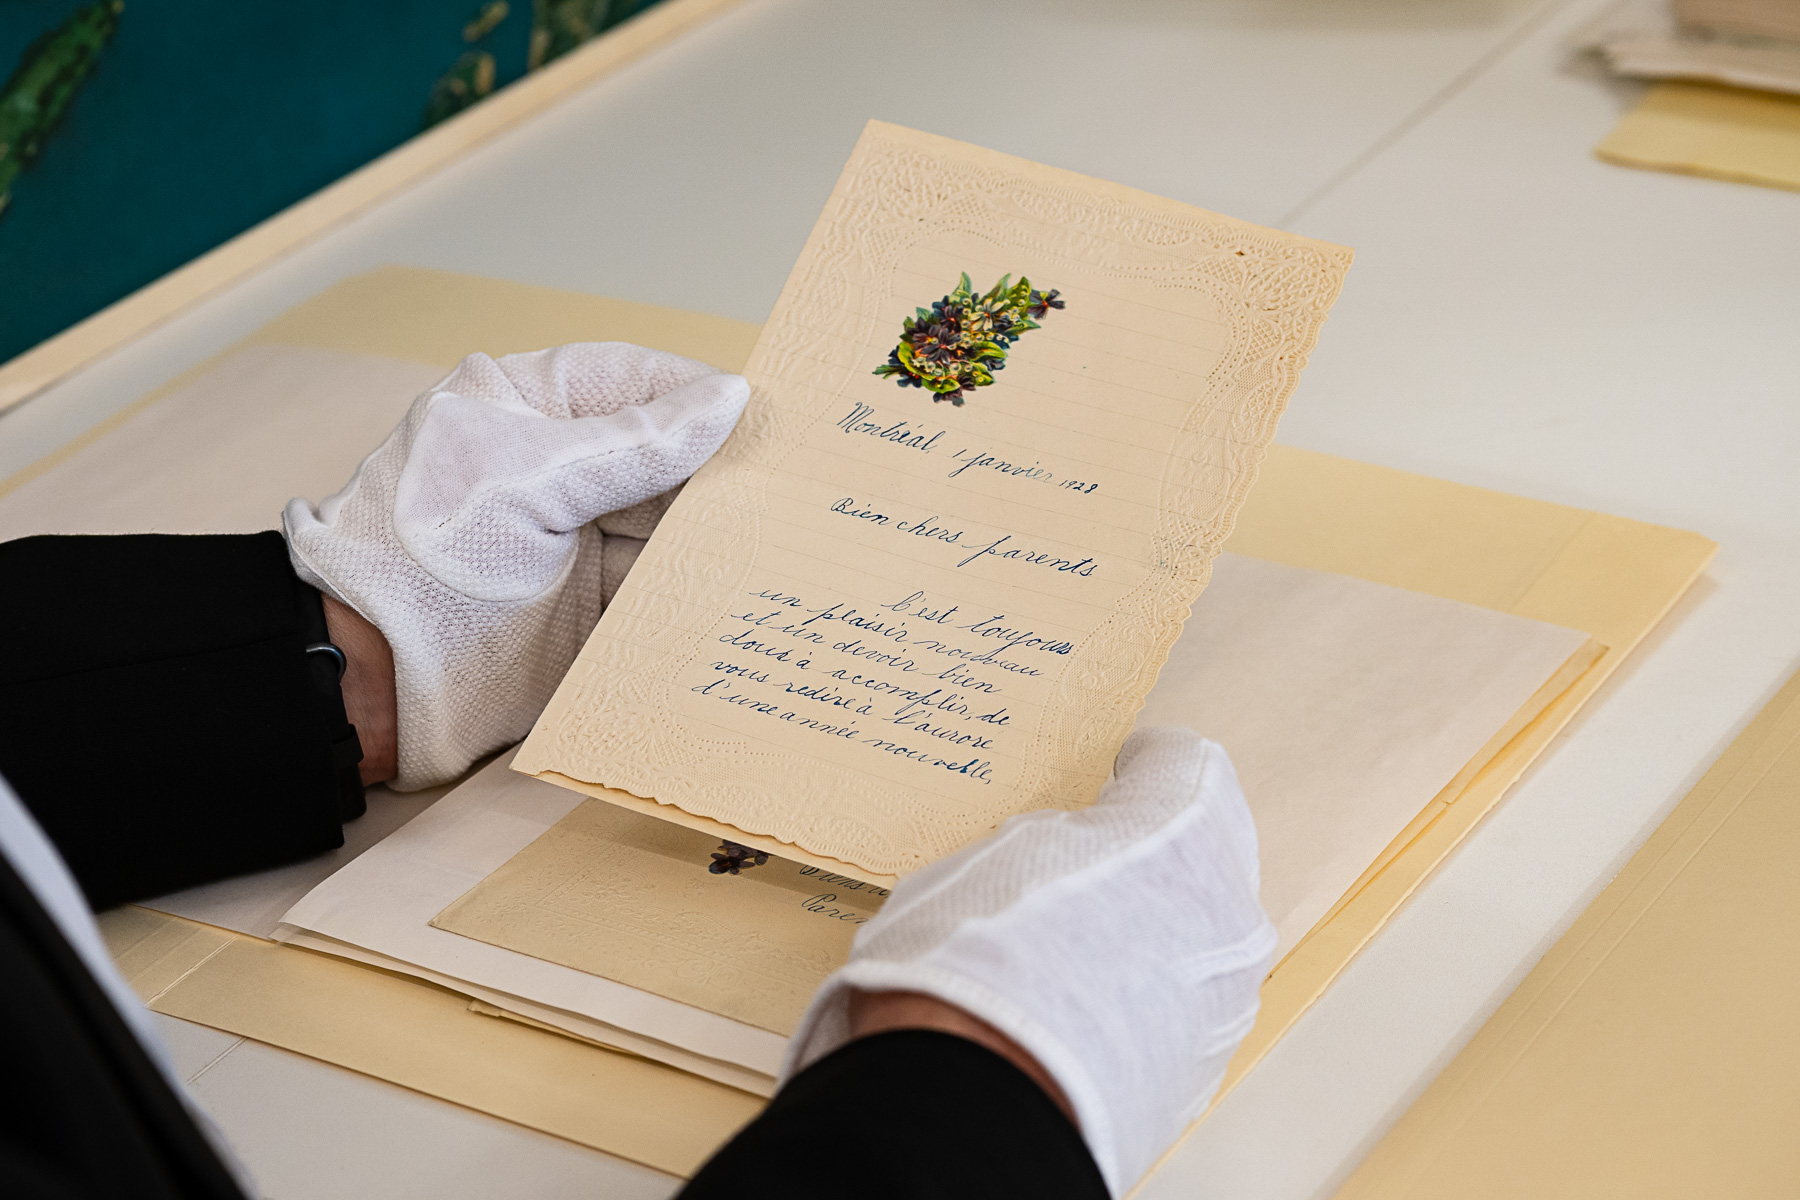 Montréal, 1 janvier 1928
Bien chers parents
C'est toujours
un plaisir nouveau
et un devoir bien
doux à accomplir, de
vous redire à l'aurore
d'une année nouvelle,
Paren